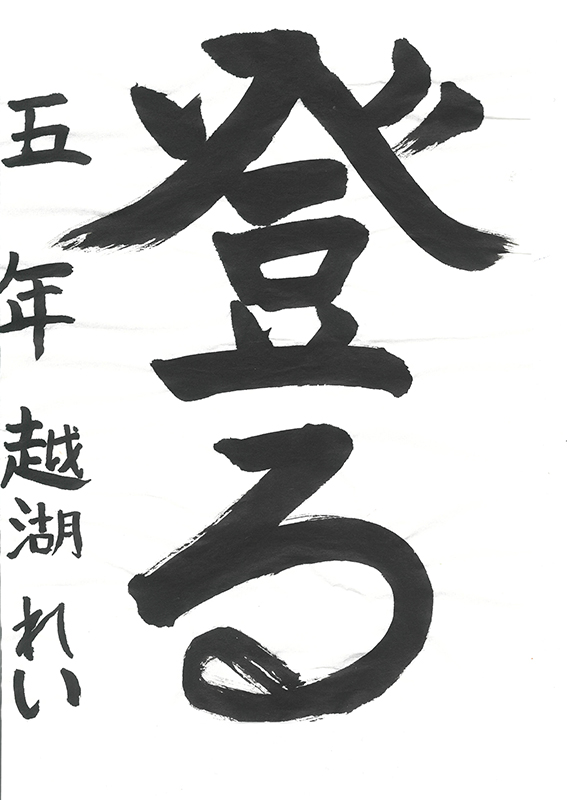 登る
五年 越湖 れい